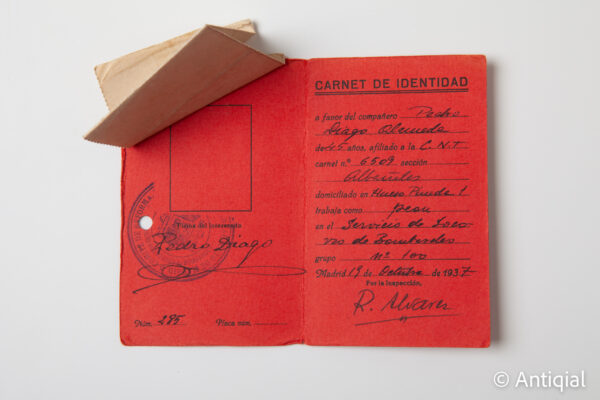 Firma del interesado
Pedro Diago
Núm. 285 Placa núm.
CARNET DE IDENTIDAD
a favor del compañero Pedro
Diago Almeda
de 45 años, afiliado a la C.N.T
carnet n.º 6509 sección
Albañiles
domiciliado en
trabaja como peon
en el Servicio de Soco
rro de Bombardeos
grupo nº 100
Madrid 19 de Octubre de 1937
Por la Inspección,
R. Alvarez
© Antiqial